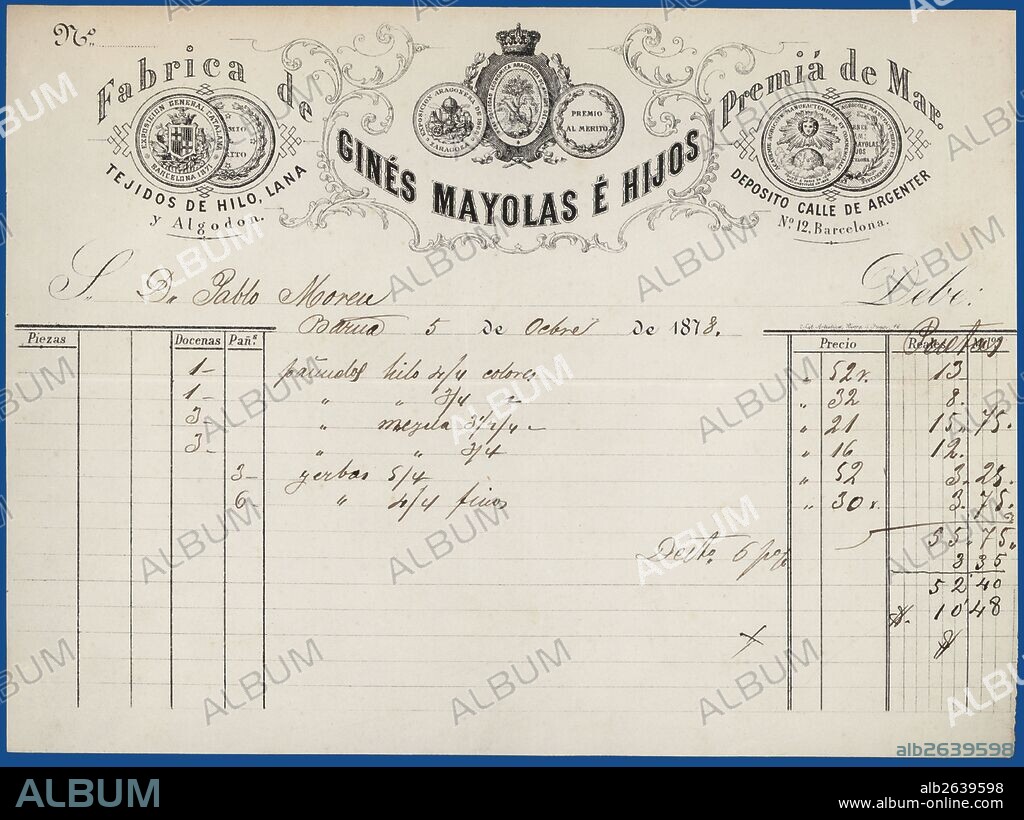 Nº
Fabrica de
Premiá de Mar.
EXPOSICION GENERAL CATALANA
BARCELONA 187
EXPOSICION ARAGONESA DE
ZARAGOZA
PREMIO
AL MERITO
TEJIDOS DE HILO, LANA
y Algodon.
GINÉS MAYOLAS É HIJOS
DEPOSITO CALLE DE ARGENTER
Nº 12, Barcelona.
S. D. Pablo Moreu Debe:
Barna 5 de Ocbre de 1878.
Piezas Docenas Pañ.s Precio Pesetas
1 – pañuelos hilo 4/4 colores " 52 r. 13
1 – " " 3/4 – " 32 8.
3 – " mezcla 3 1/2/4 – " 21 15. 75.
3 – " " 3/4 " 16 12.
3 – yerbas 5/4 " 52 3. 25.
6 " 4/4 finos " 30 r. 3. 75.
55. 75.
Desto. 6 p% 3 35
52 40
$. 10'48
ALBUM
alb2639598
ALBUM
alb2639598
www.album-online.com